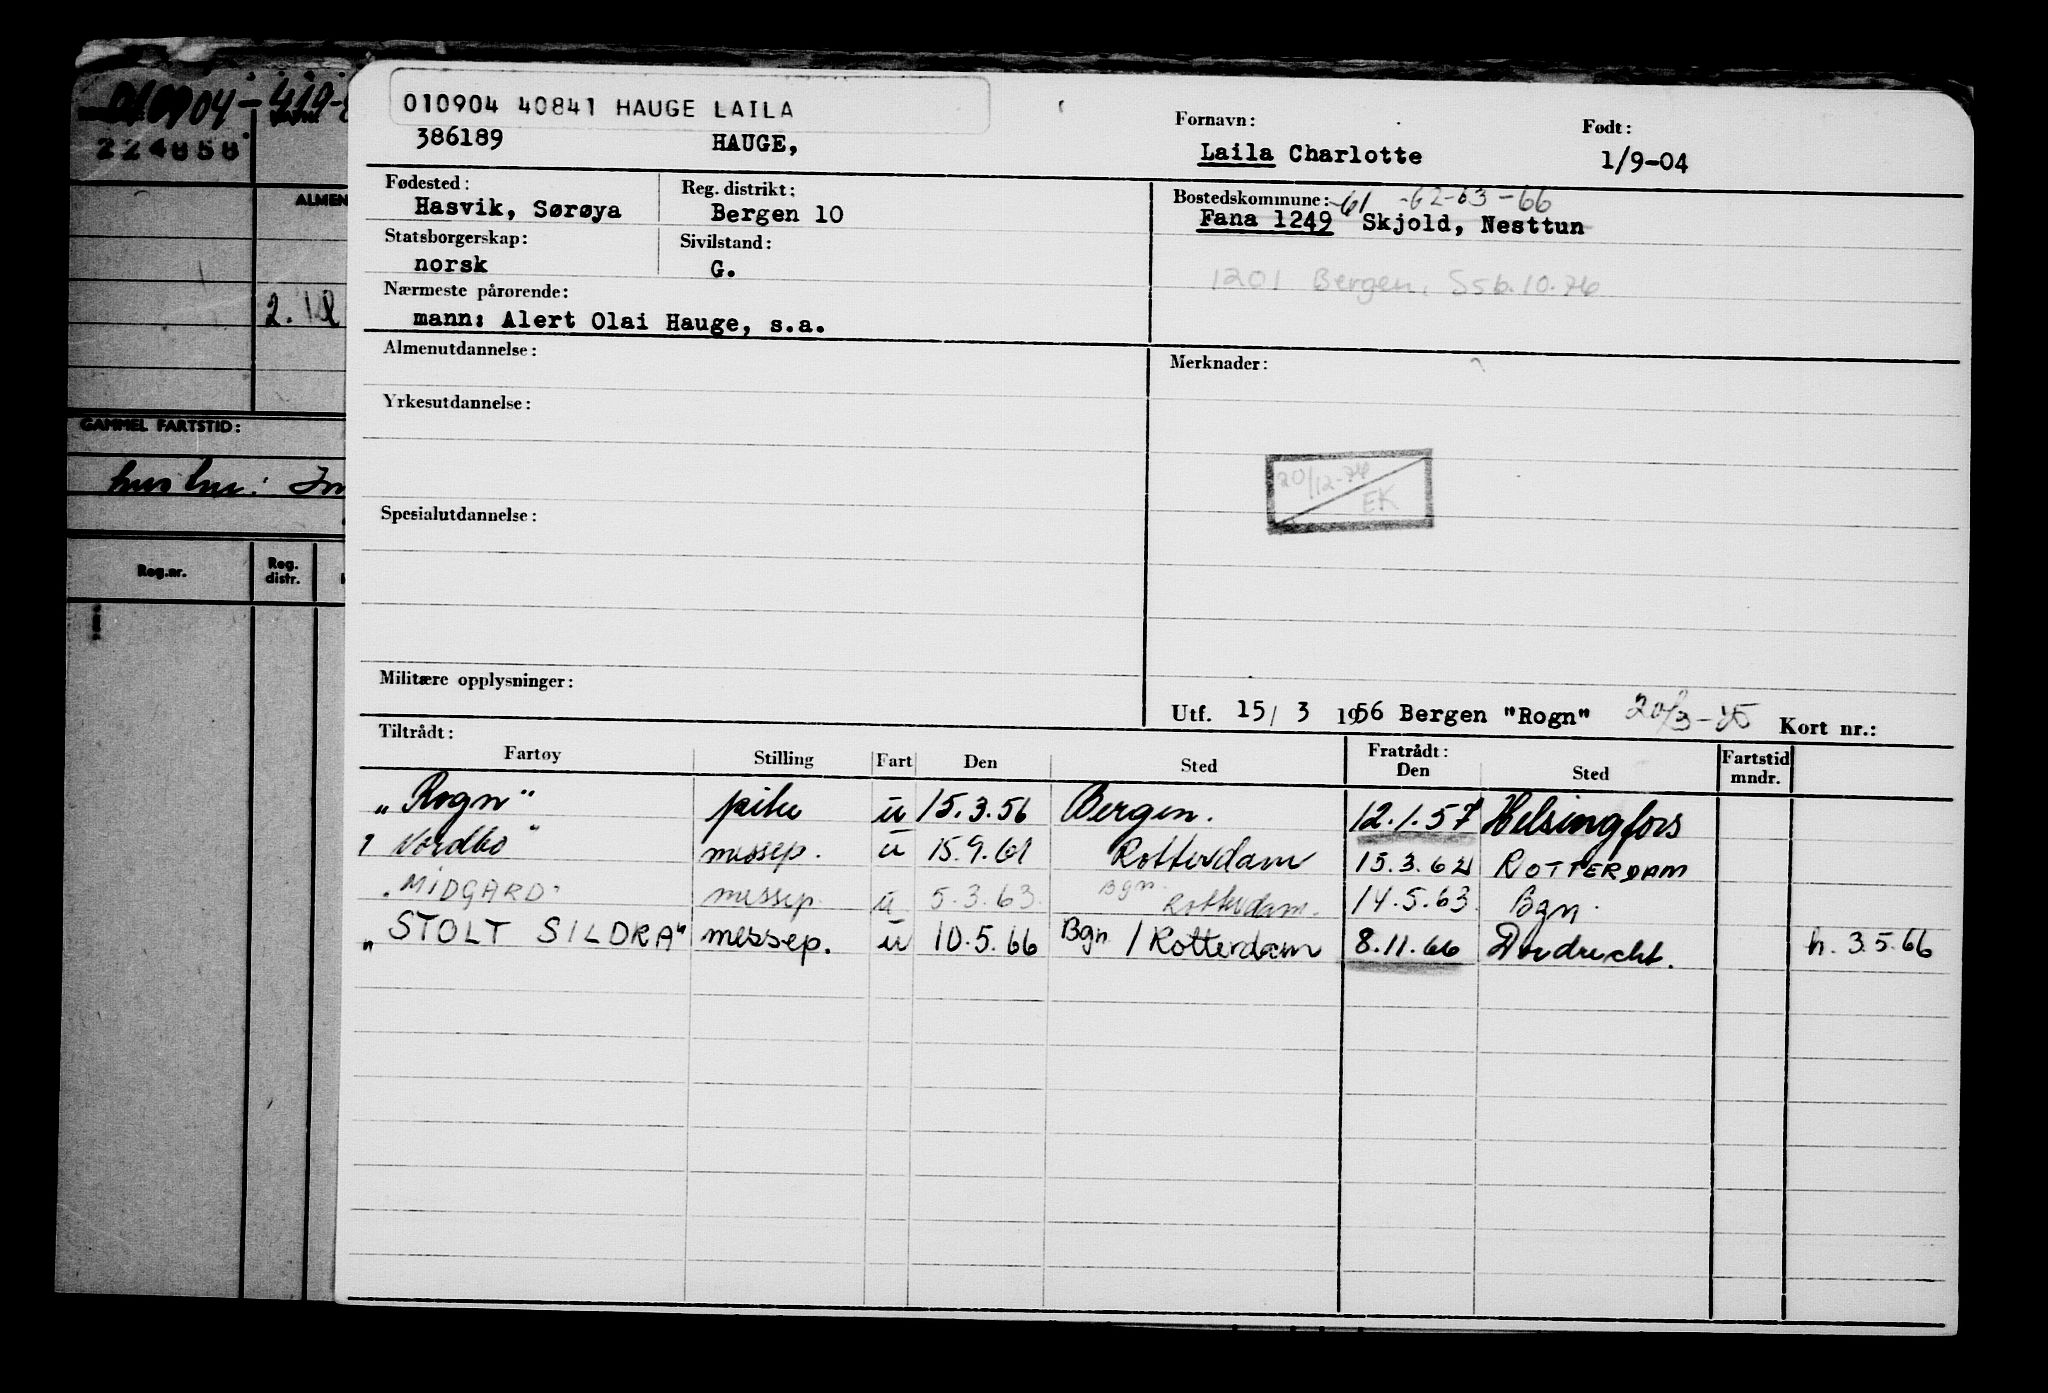 224858
ALMEN
2.
GAMMEL FARTSTID:
Reg.nr.
Reg. distr.
010904 40841 HAUGE LAILA
386189 HAUGE,
Fornavn: Født:
Laila Charlotte 1/9-04
Fødested: Reg. distrikt: Bostedskommune: -61 -62-63-66
Hasvik, Sørøya Bergen 10 Fana 1249 Skjold, Nesttun
Statsborgerskap: Sivilstand:
norsk G.
1201 Bergen, Ssb.10.76
Nærmeste pårørende:
mann: Alert Olai Hauge, s.a.
Almenutdannelse: Merknader:
Yrkesutdannelse:
20/12-76
EK
Spesialutdannelse:
Militære opplysninger:
Utf. 15/ 3 1956 Bergen "Rogn" Kort nr.:
Tiltrådt: Fratrådt:
Fartøy Stilling Fart Den Sted Den Sted Fartstid mndr.
„Rogn" u 15.3.56 Bergen. 12.1.57 Helsingfors
Nordbo" messep. u 15.9.61 Rotterdam 15.3.62 ROTTERDAM
"MIDGARD" messep u 5.3.63. Bgn. Rotterdam. 14.5.63. Bgn.
„STOLT SILDRA" messep. u 10.5.66 Bgn / Rotterdam 8.11.66 Dordrecht. h. 3.5.66